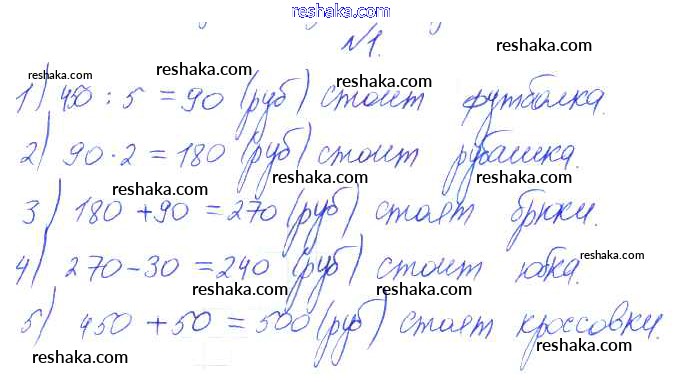 reshaka.com
№1.
reshaka.com
reshaka.com
reshaka.com
1) 450 : 5 = 90 (руб) стоит футболка.
reshaka.com
reshaka.com
2) 90 · 2 = 180 (руб) стоит рубашка.
reshaka.com
reshaka.com
3) 180 + 90 = 270 (руб) стоят брюки.
reshaka.com
reshaka.com
4) 270 - 30 = 240 (руб) стоит юбка.
reshaka.com
reshaka.com
5) 450 + 50 = 500 (руб) стоят кроссовки.
reshaka.com
reshaka.com
reshaka.com